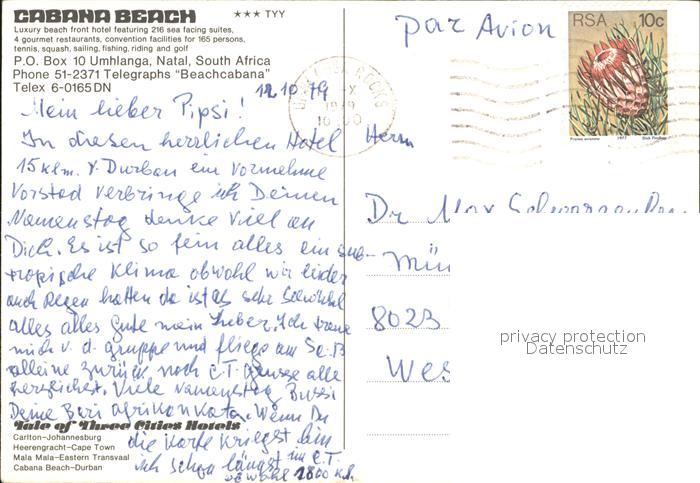 CABANA BEACH ★★★ TYY
Luxury beach front hotel featuring 216 sea facing suites,
4 gourmet restaurants, convention facilities for 165 persons,
tennis, squash, sailing, fishing, riding and golf
P.O. Box 10 Umhlanga, Natal, South Africa
Phone 51-2371 Telegraphs "Beachcabana"
Telex 6-0165DN
12.10.79
Mein lieber Pipsi!
In diesem herrlichen Hotel
15 klm. v. Durban ein vornehme
Vorstad verbringe ich Deinen
Namenstag denke viel an
Dich. Es ist so fein alles ein sub-
tropische Klima obwohl wir leider
auch Regen hatten da ist es sehr
alles alles Gute mein Lieber. Ich
mich v. d. Gruppe und fliege am
alleine zurück nach C.T. alle
herzlichst. Viele Namenstag Bussi
Deine Beri Wenn Du
die Karte kriegst bin
ich schon längst in C.T.
obwohl 1800 klm
Tale of Three Cities Hotels
Carlton-Johannesburg
Heerengracht-Cape Town
Mala Mala-Eastern Transvaal
Cabana Beach-Durban
par Avion
RSA 10c
1977
ROCKS
X
1979
Herrn
Dr Max
Mün
8023
Wes
privacy protection
Datenschutz